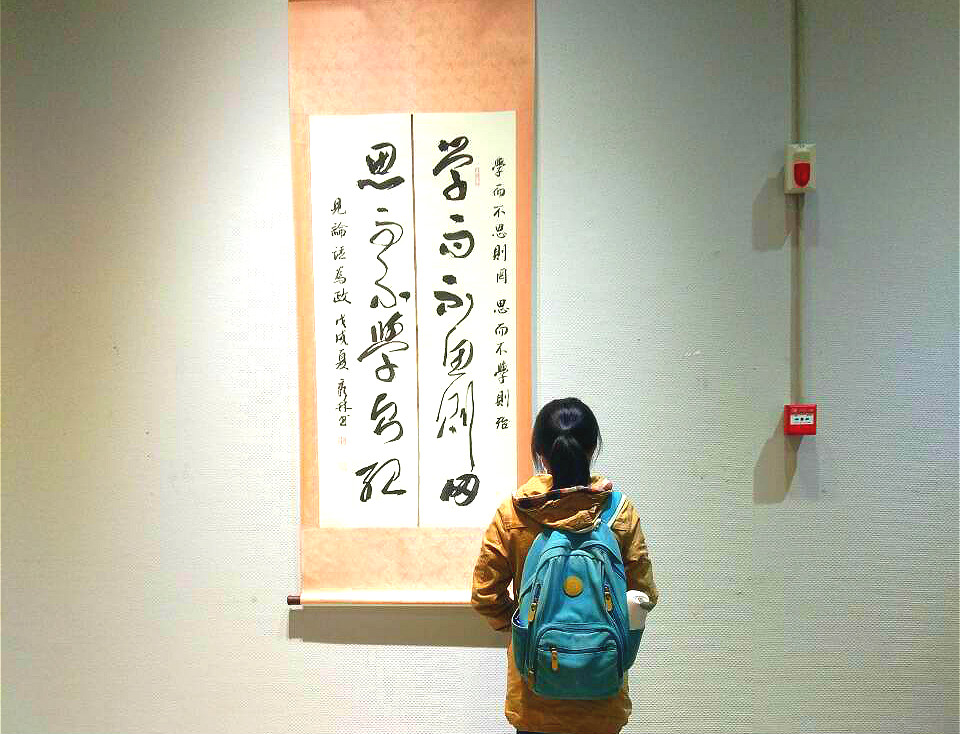 學而不思則罔 思而不學則殆
学而不思则罔
思而不學則殆
見論語為政 戊戌夏